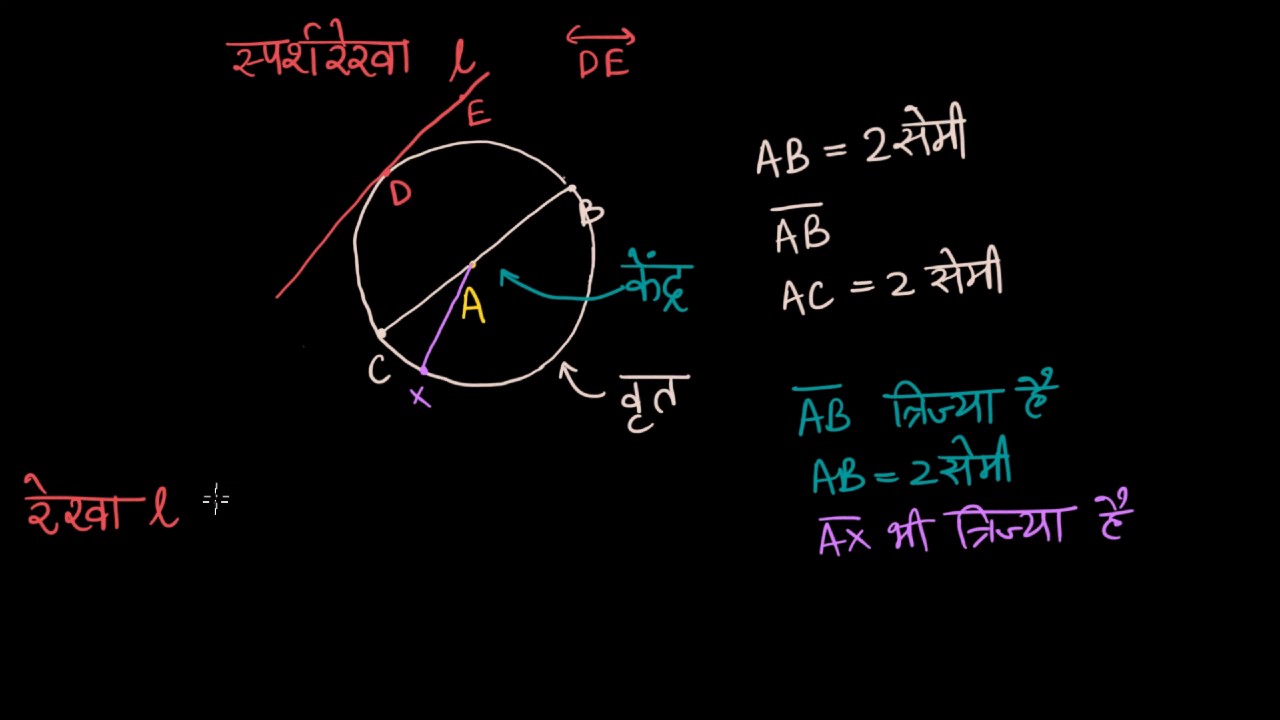 स्पर्शरेखा l
DE
E
D
B
A
C
X
केंद्र
वृत
AB = 2 सेमी
AB
AC = 2 सेमी
AB त्रिज्या है
AB = 2 सेमी
AX भी त्रिज्या है
रेखा l